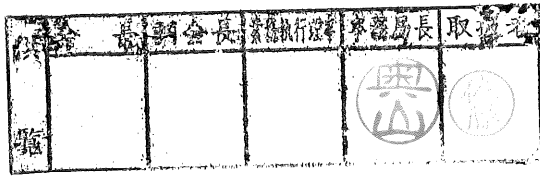 供覧
会長
副会長
業務執行理事
事務局長
取扱者
奥山